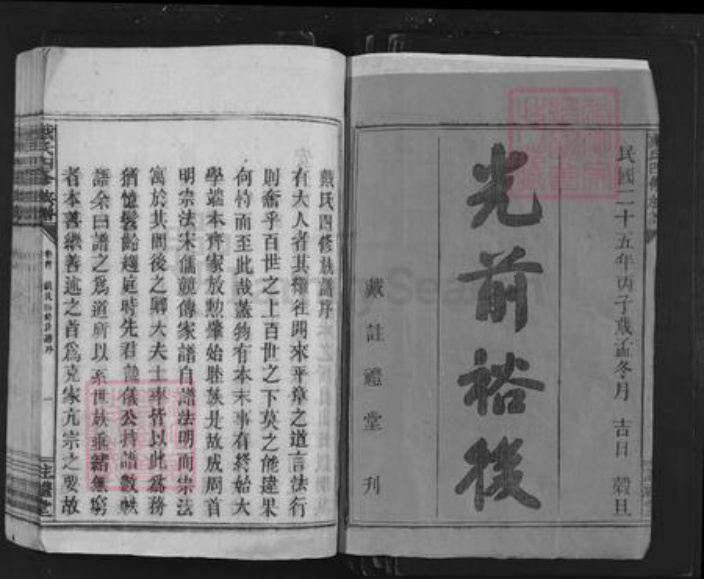 民國二十五年丙子歲孟冬月 吉日 穀旦
光前裕後
戴註禮堂刊
戴氏四修族譜序
有大人者其繼往開來平章之道言法行
則奮乎百世之上百世之下莫之能違果
何恃而至此哉蓋物有本末事有終始大
學端本齊家放勲肇始睦族是故成周首
明宗法宋儒競傳家譜自譜法明而宗法
寓於其間後之卿大夫士率皆以此為務
猶憶髫齡趨庭時先君 儀公持譜數帙
語余曰譜之為道所以系世族垂緒無窮
者本善繼善述之旨為克家亢宗之要故